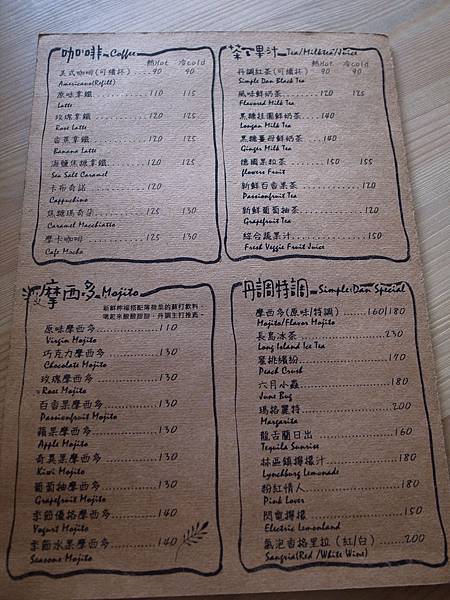 咖啡 Coffee
熱Hot 冷Cold
美式咖啡(可續杯) 90 90
Americano(Refill)
原味拿鐵 110 115
Latte
玫瑰拿鐵 120 125
Rose Latte
香蕉拿鐵 120 125
Banana Latte
海鹽焦糖拿鐵 120 125
Sea Salt Caramel
卡布奇諾 120
Cappuchino
焦糖瑪奇朵 125 130
Caramel Macchiatto
摩卡咖啡 125 130
Cafe Mocha
茶、果汁 Tea/Milktea/Juice
熱Hot 冷Cold
丹調紅茶(可續杯) 90 90
Simple Dan Black Tea
風味鮮奶茶 120 125
Flavored Milk Tea
黑糖桂圓鮮奶茶 140
Longan Milk Tea
黑糖薑母鮮奶茶 140
Ginger Milk Tea
德國果粒茶 150 155
flowers Fruit
新鮮百香果茶 120
Passionfruit Tea
新鮮葡萄柚茶 120
Grapefruit Tea
綜合蔬果汁 150
Fresh Veggie Fruit Juice
摩西多 Mojito
新鮮檸檬搭配薄荷葉的蘇打飲料，
喝起來酸酸甜甜，丹調主打推薦。
原味摩西多 110
Virgin Mojito
巧克力摩西多 130
Chocolate Mojito
玫瑰摩西多 130
Rose Mojito
百香果摩西多 130
Passionfruit Mojito
蘋果摩西多 130
Apple Mojito
奇異果摩西多 130
Kiwi Mojito
葡萄柚摩西多 130
Grapefruit Mojito
季節優格摩西多 140
Yogurt Mojito
季節水果摩西多 140
Seasons Mojito
丹調特調 Simple Dan Special
摩西多(原味/特調) 160/180
Mojito/Flavor Mojito
長島冰茶 230
Long Island Ice Tea
蜜桃繽紛 170
Peach Crush
六月小蟲 180
June Bug
瑪格麗特 200
Margarita
龍舌蘭日出 160
Tequila Sunrise
林區鎮檸檬汁 180
Lynchburg Lemonade
粉紅情人 180
Pink Lover
閃電檸檬 150
Electric Lemonland
氣泡香格里拉(紅/白) 200
Sangria(Red /White Wine)